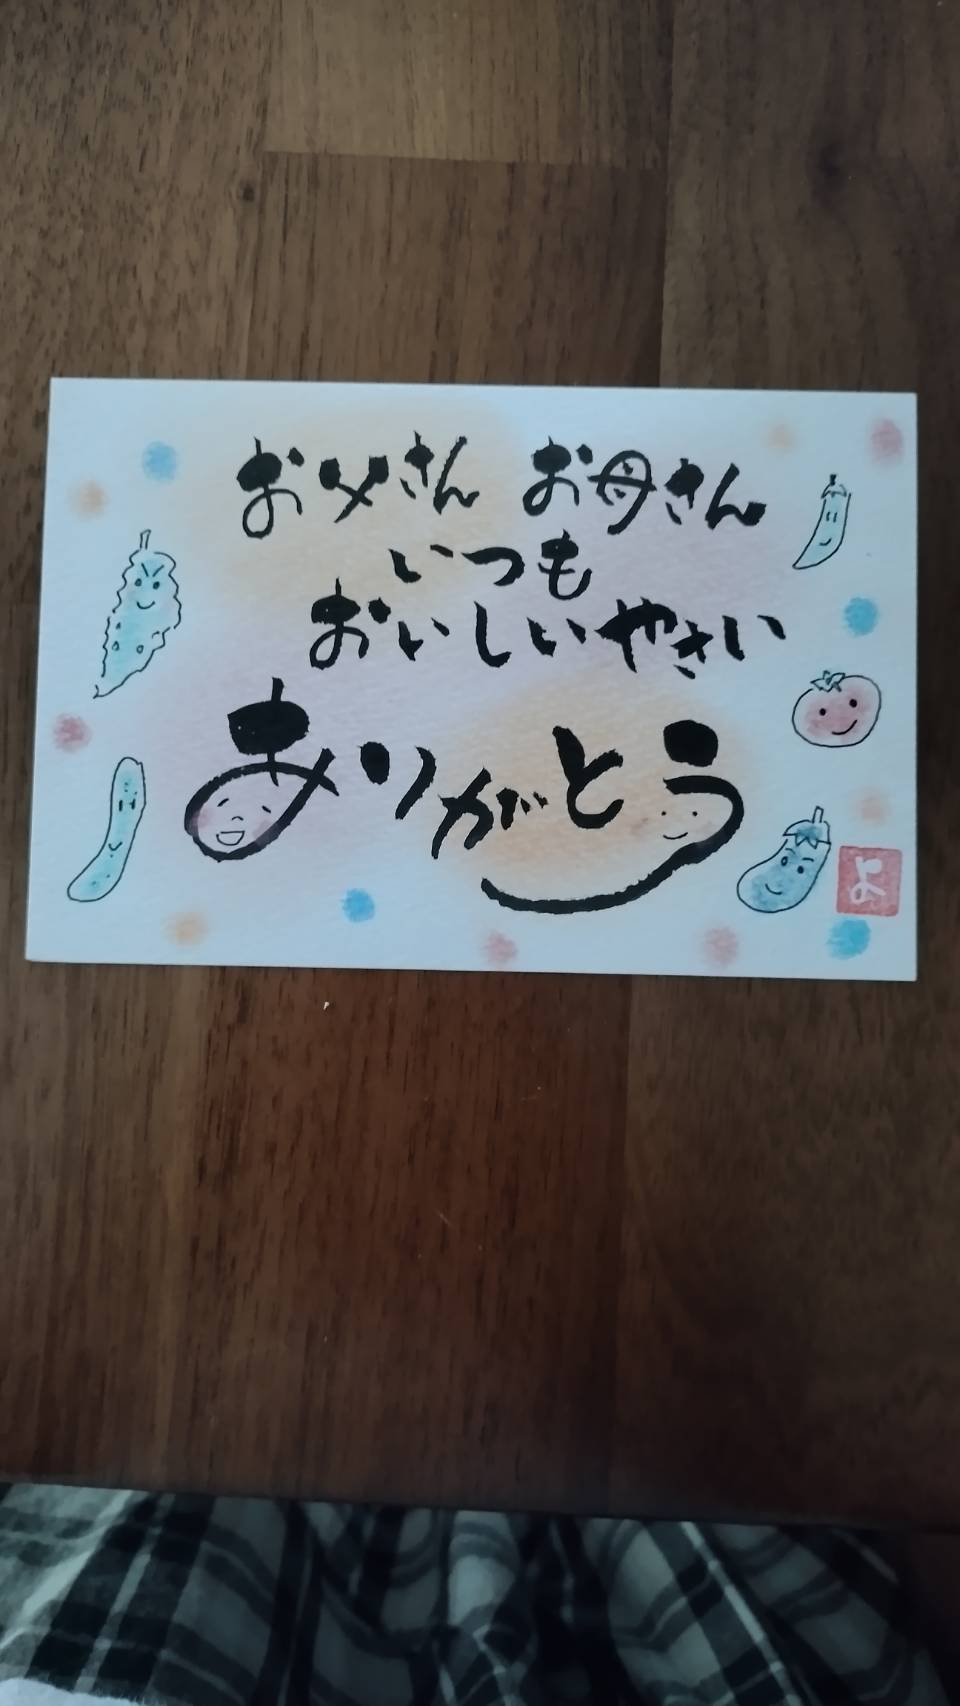 お父さん お母さん
いつも
おいしいやさい
ありがとう
よ